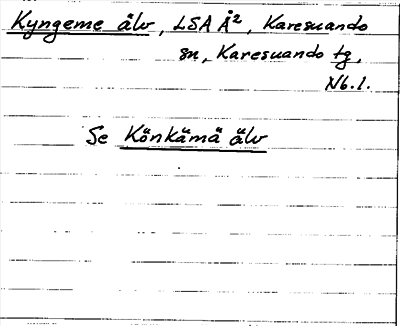 Kyngeme älv, LSA Å², Karesuando
sn, Karesuando tg,
Nb. l.
Se Könkämä älv